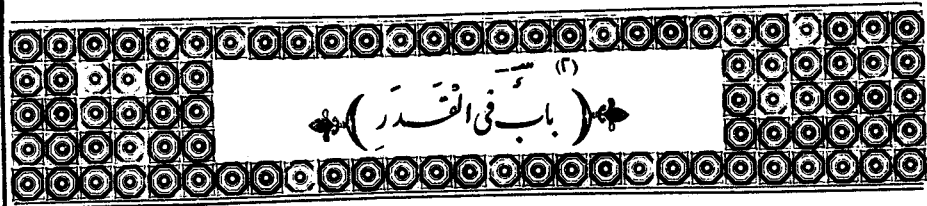 (٢)
﴿ بابٌ في القَدَرِ ﴾